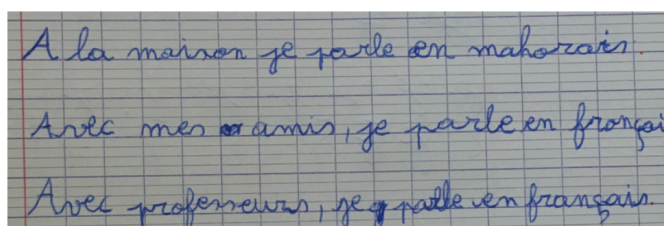 A la maison je parle en mahorais.
Avec mes amis, je parle en françai
Avec professeurs, je parle en français.